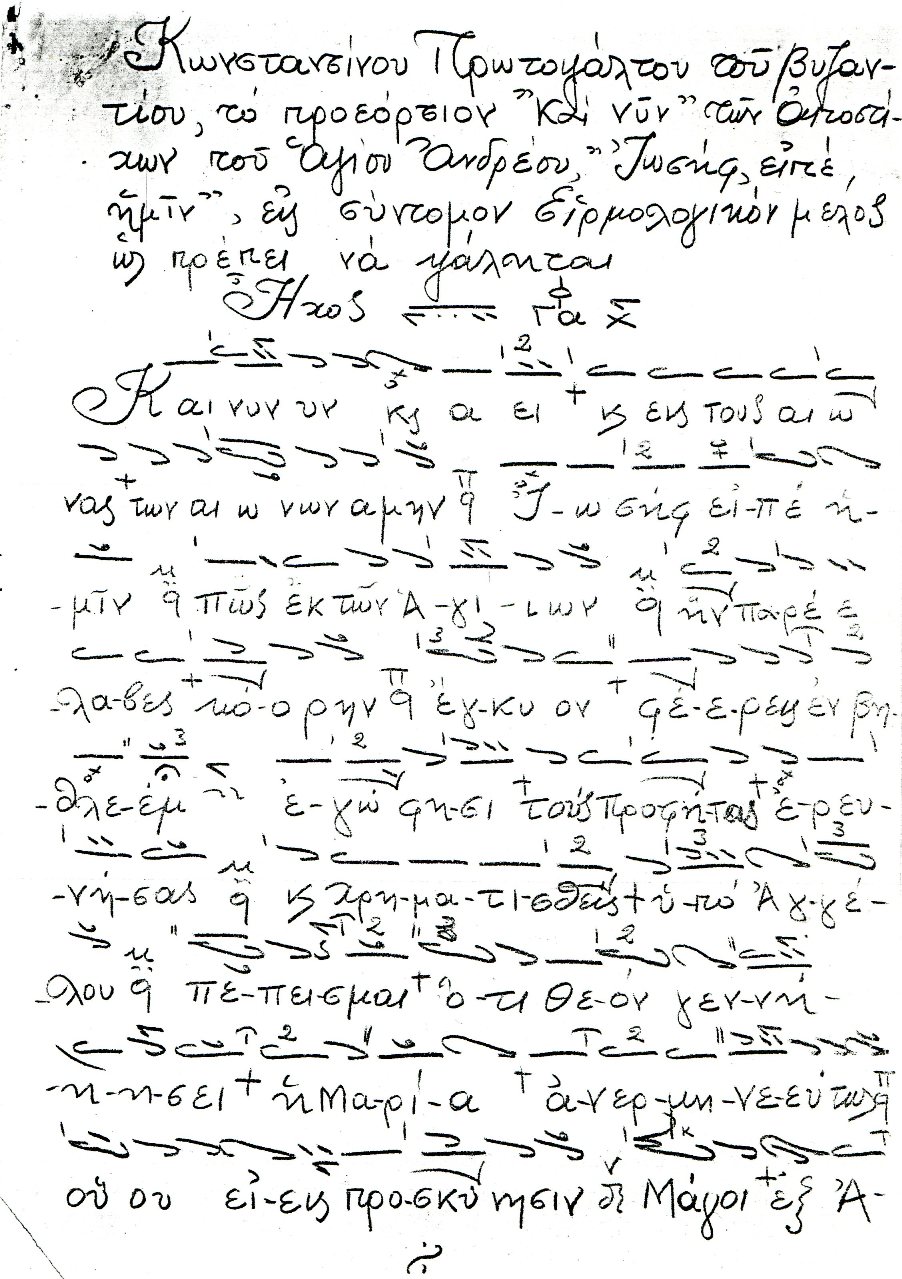 Κωνσταντίνου Πρωτοψάλτου τοῦ βυζαν-
τίου, τό προεόρτιον "Καί νῦν" τῶν ἀποστί-
χων τοῦ Ἁγίου Ἀνδρέου, "Ἰωσήφ, εἰπέ,
ἡμῖν", εἰς σύντομον εἱρμολογικόν μέλος
ὡς πρέπει νά ψάλληται
Ἦχος Γα
Και νυν υν κ̀ α ει κ̀ εις τους αι ω
νας των αι ω νων αμην Ἰ-ω σήφ εἰ-πέ ἡ-
-μῖν πῶς ἐκ τῶν Ἁ-γί-ιων ἥν παρέ ε
-λα-βες κό-ο ρην ἔγ-κυ ον φέ-ε-ρεις ἐν βη-
-θλε-έμ ἐ-γώ φη-σι τούς προφή-τας ἐ-ρευ-
-νή-σας κ̀ χρη-μα-τι-σθείς ὑ-πό Ἀγ-γέ-
-λου πέ-πει-σμαι ὅ-τι Θε-όν γεν-νή-
-η-η-σει ἡ Μα-ρί-α ἀ-νερ-μη-νε-εύ τως
οὗ ου εἰ-εις προ-σκύ νησιν Μάγοι ἐξ Ἀ-